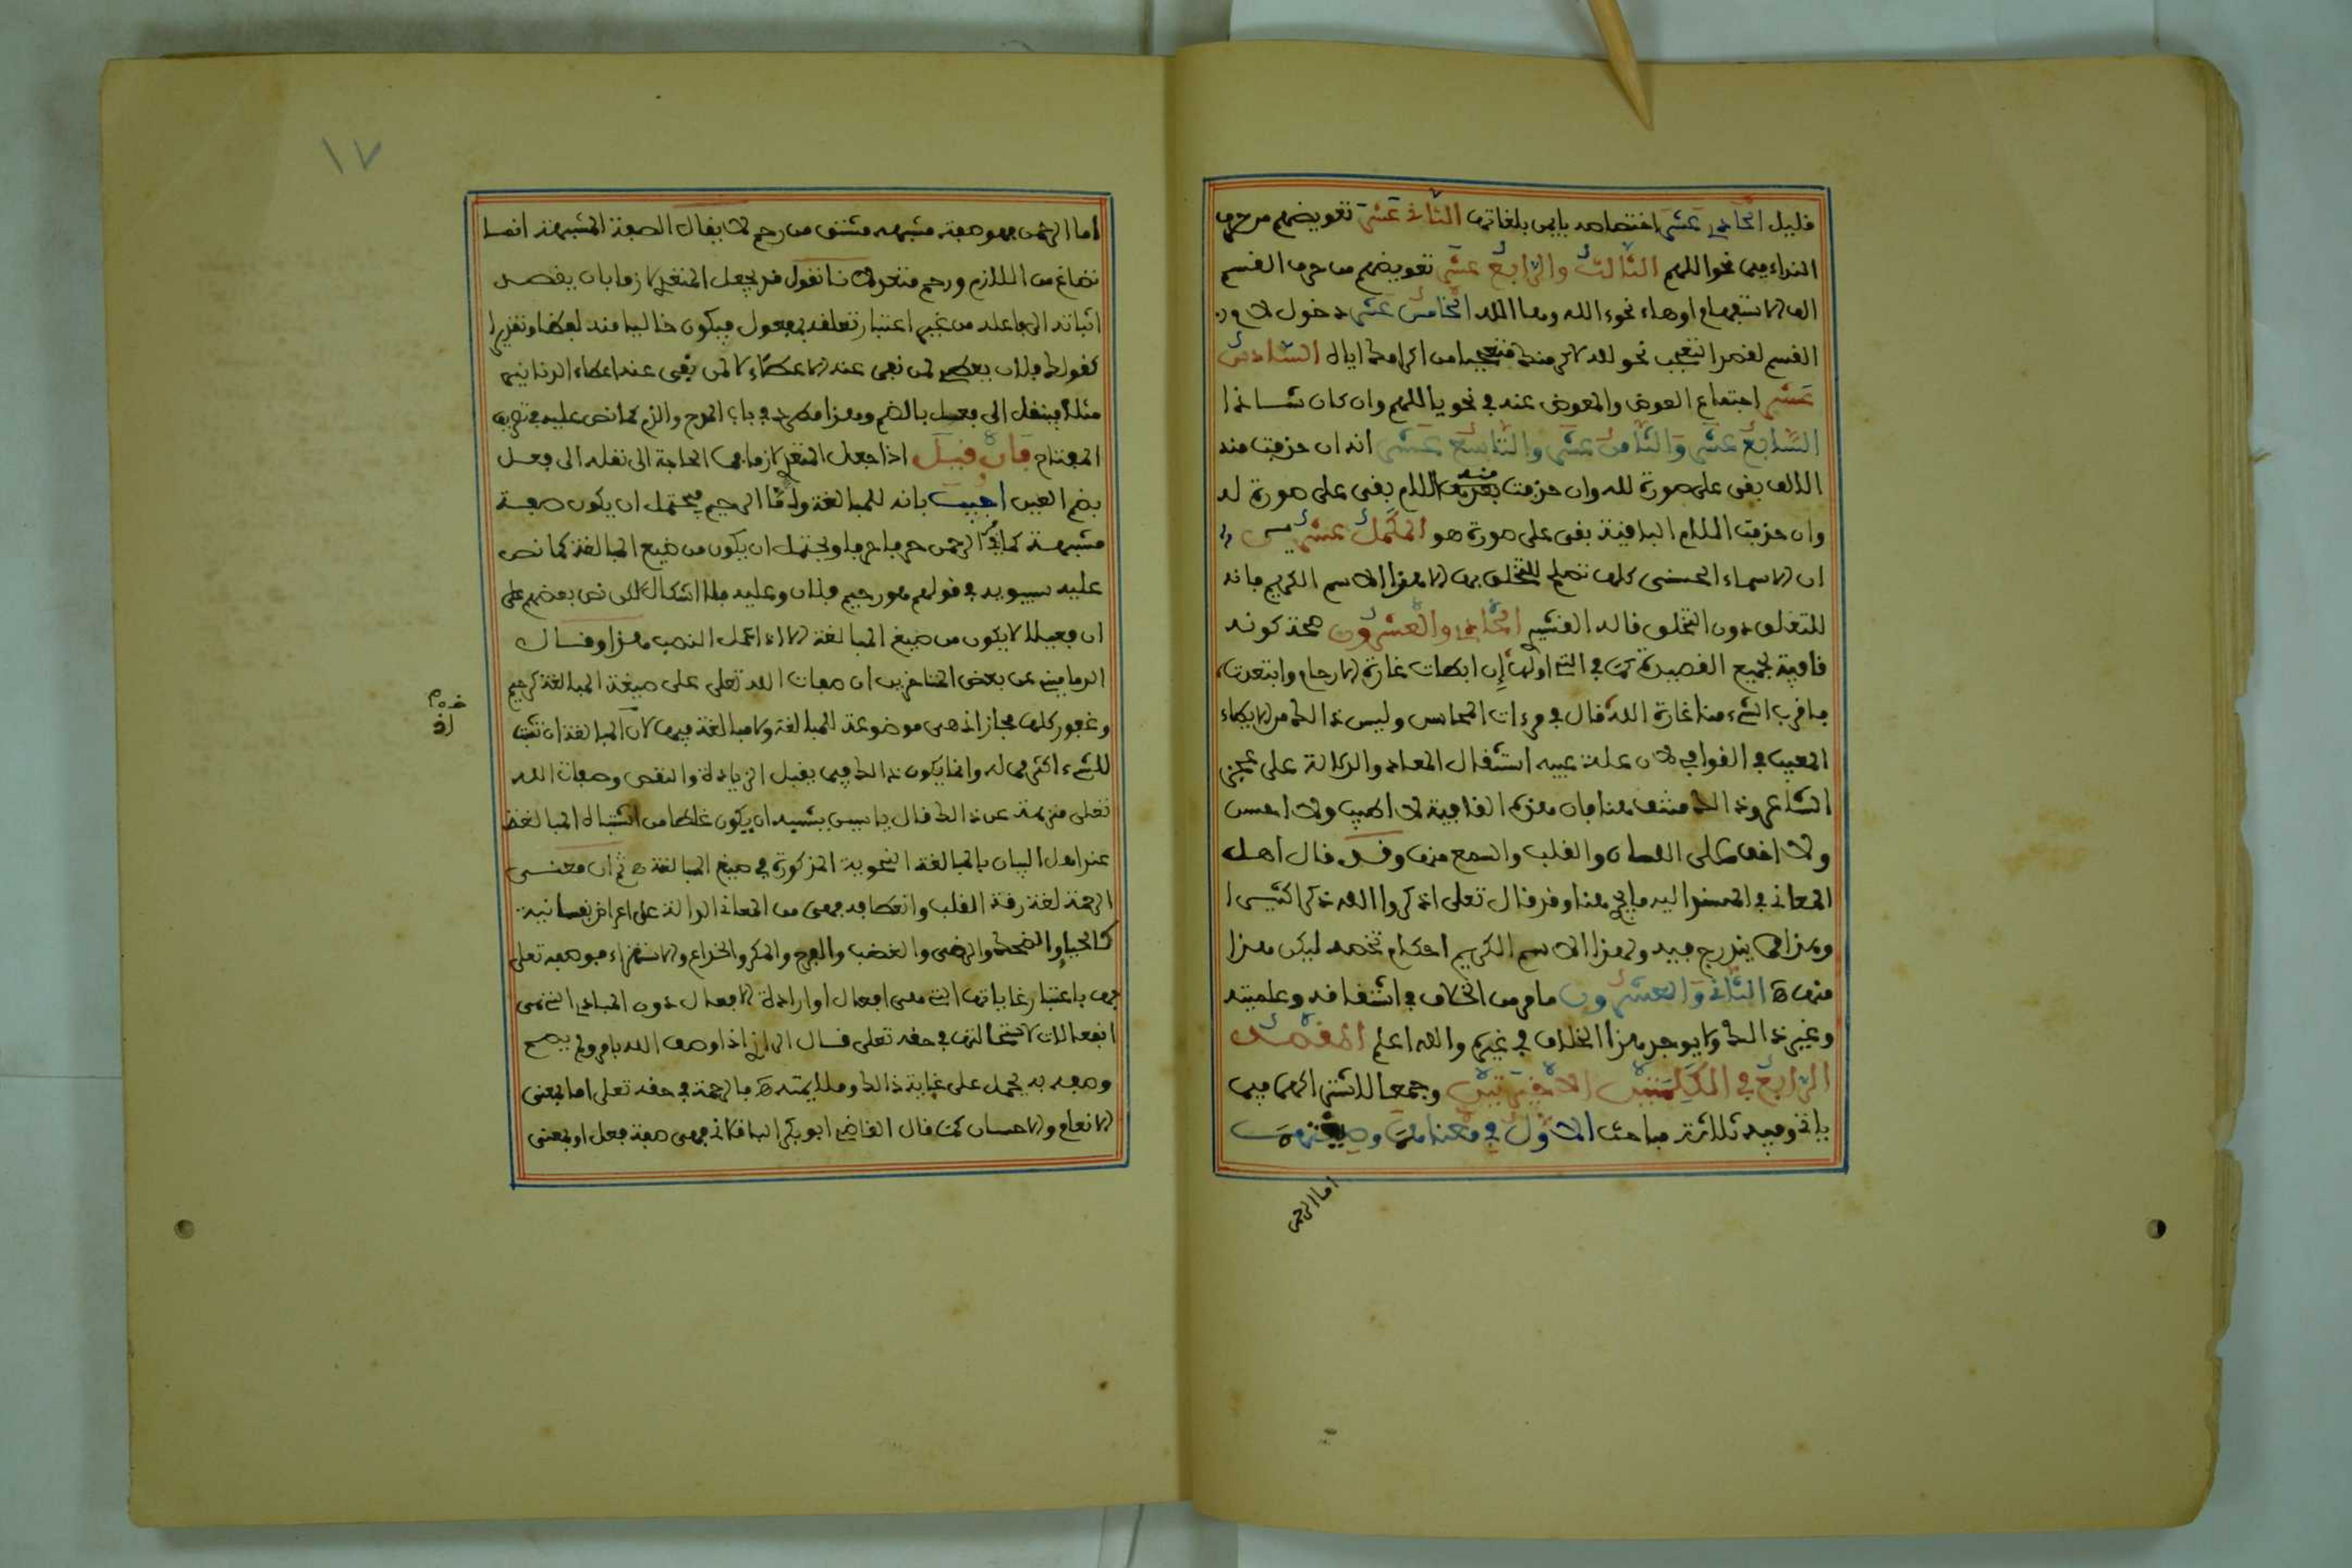 قليل الحادي عشر اختصاصه بايمن بلغاتها الثاني عشر تعويضهم من حرف
النداء ميما نحو اللهم الثالث والرابع عشر تعويضهم من حرف القسم
الف الاستفهام اوهاء نحو ءالله وها الله الخامس عشر دخول لام
القسم لقصد التعجب نحو لله السادس
عشر اجتماع العوض والمعوض عنه في نحو يا اللهم وان كان شاذا
السابع عشر والثامن عشر والتاسع عشر انه ان حذفت منه
الالف بقى على صورة لله وان حذفت اللام بقى على صورة له
وان حذفت اللام الباقية بقى على صورة هو المكمل عشرين
ان الاسماء الحسنى كلها تصلح للتخلق بها الا هذا الاسم الكريم فانه
للتعلق دون التخلق قاله القشير الحادي والعشرون صحة كونه
قافية لجميع القصيدة كما في التي اولها إن ابطات غارة الارحام وابتعدت
فاقرب الشيء منا غارة الله قال في مرءات المحاسن وليس ذالك من الايطاء
المعيب في القوافي لان علة عيبه استثقال المعاد والدلالة على عجز
الشاعر وذالك منتف هنا فان هذه القافية لا اطيب ولا احسن
ولا اخف على اللسان والقلب والسمع منها وقد قال اهل
المعاني في المسند اليه وقد قال تعلى اذكروا الله ذكرا كثيرا
وهذا مما يندرج فيه ولهذا الاسم الكريم احكام تخصه ليكن هذا
منها الثاني والعشرون ما مر من الخلاف في اشتقاقه وعلميته
وغير ذالك ولا يوجد هذا الخلاف في غيره والله اعلم المقصد
الرابع في الكلمتين الاخيرتين وجمعا لاشتراكهما فيما
ياتي وفيه ثلاثة مباحث الاول في معناهما وصيغتهما
اما الرحمن
١٧
اما الرحمن فهو صفة مشبهة مشتق من رحم لا يقال الصفة المشبهة انما
تصاغ من اللازم ورحم متعد لانا نقول قد يجعل المتعدي لازما بان يقصد
اثباته الى فاعله من غير اعتبار تعلقه بمفعول فيكون خاليا منه لفظا وتقديرا
كقولك فلان يعطي لمن نفى عنه الاعطاء لا لمن نفى عنه اعطاء الدنانير
مثلا فينقل الى فعل بالضم وهذا مطرد في باب المدح والذم كما نص عليه في تصريف
المفتاح فان قيل اذا جعل المتعدي لازما فما الحاجة الى نقله الى فعل
بضم العين اجيب بانه للمبالغة وامّا الرحيم فيحتمل ان يكون صفة
مشبهة كما في الرحمن حرفا حرفا ويحتمل ان يكون من صيغ المبالغة كما نص
عليه سيبويه في قولهم هو رحيم فلان وعليه فلا اشكال لكن نص بعضهم على
ان فعيلا لا يكون من صيغ المبالغة الا اذا عمل النصب هذا وقال
الدماميني عن بعض المتاخرين ان صفات الله تعلى على صيغة المبالغة كرحيم
وغفور كلها مجاز اذ هي موضوعة للمبالغة ولا مبالغة فيها لان المبالغة ان تثبت
للشيء اكثر مما له وانما يكون ذالك فيما يقبل الزيادة والنقص وصفات الله
تعلى منزهة عن ذالك قال ياسين يشبه ان يكون غلطا من اشتباه المبالغة
عند اهل البيان بالمبالغة النحوية المذكورة في صيغ المبالغة ثم ان معنى
الرحمة لغة رقة القلب وانعطافه فهى من المعاني الدالة على اعراض نفسانية
كالحياء والضحك والرضى والغضب والفرح والمكر والخداع والاستهزاء فوصفه تعلى
بها باعتبار غاياتها التي هي افعال او ارادة الافعال دون المبادي التي هي
انفعالات لاستحالتها في حقه تعلى قال الرازي اذا وصف الله بامر ولم يصح
وصفه به يحمل على غاية ذالك وملايمته فالرحمة في حقه تعلى اما بمعنى
الانعام والاحسان كما قال القاضي ابو بكر الباقلاني فهي صفة فعل او بمعنى